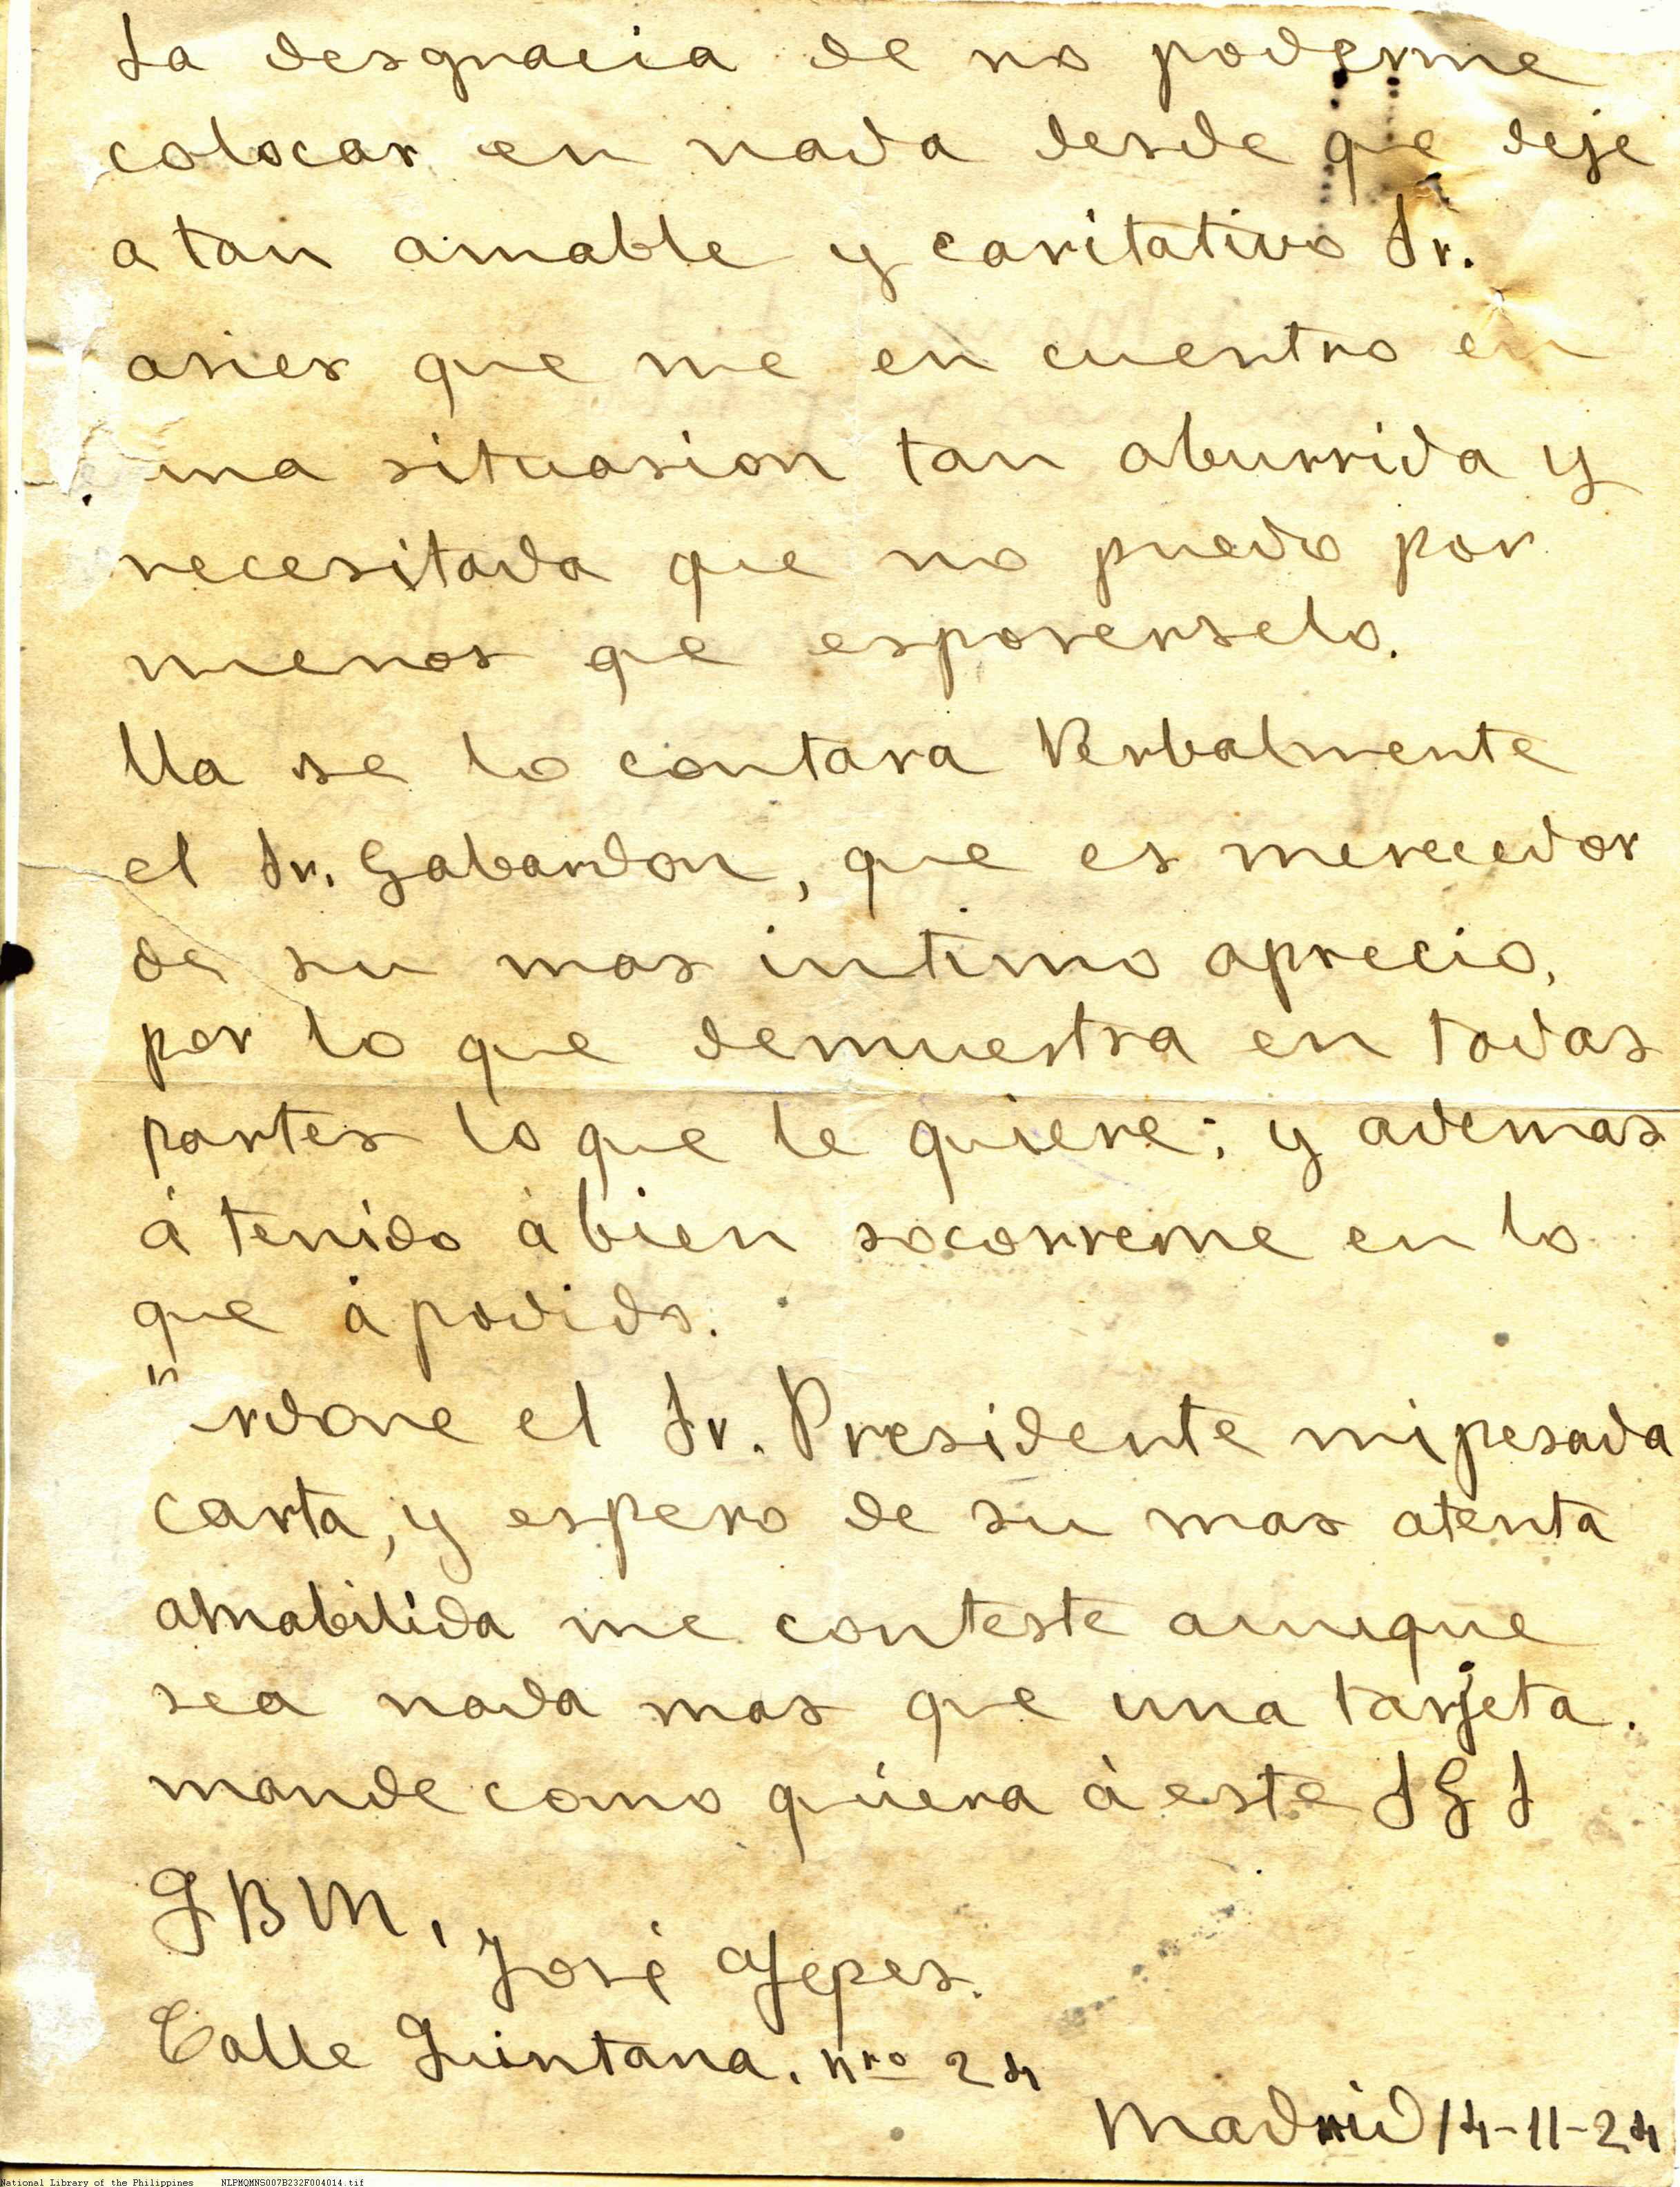 La desgracia de no poderme
colocar en nada desde que deje
a tan amable y caritativo Sr.
asies que me en cuentro en
una situasion tan aburrida y
necesitada que no puedo por
menos qe esponerselo.
Lla se lo contara Verbalmente
el Sr. Gabardon, que es merecedor
de su mas intimo aprecio,
por lo que demuestra en todas
partes lo que le quiere; y ademas
á tenido á bien socorreme en lo
que á podido.
rdone el Sr. Presidente mi pesada
carta, y espero de su mas atenta
amabilida me conteste aunque
sea nada mas que una tarjeta.
mande como quiera á este S S S
Q B M,
José Yepes.
Calle Quintana. nro 24
Madrid 14-11-24
National Library of the Philippines NLPMQMNS007B232F004014.tif